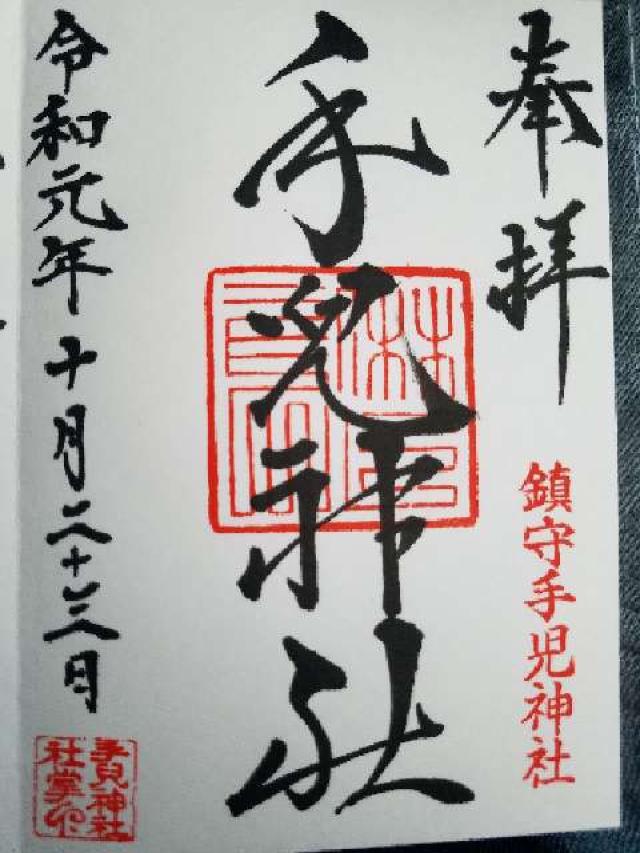 奉拝
鎮守手児神社
手兒神社
令和元年十月二十三日
手兒神社
社掌之印